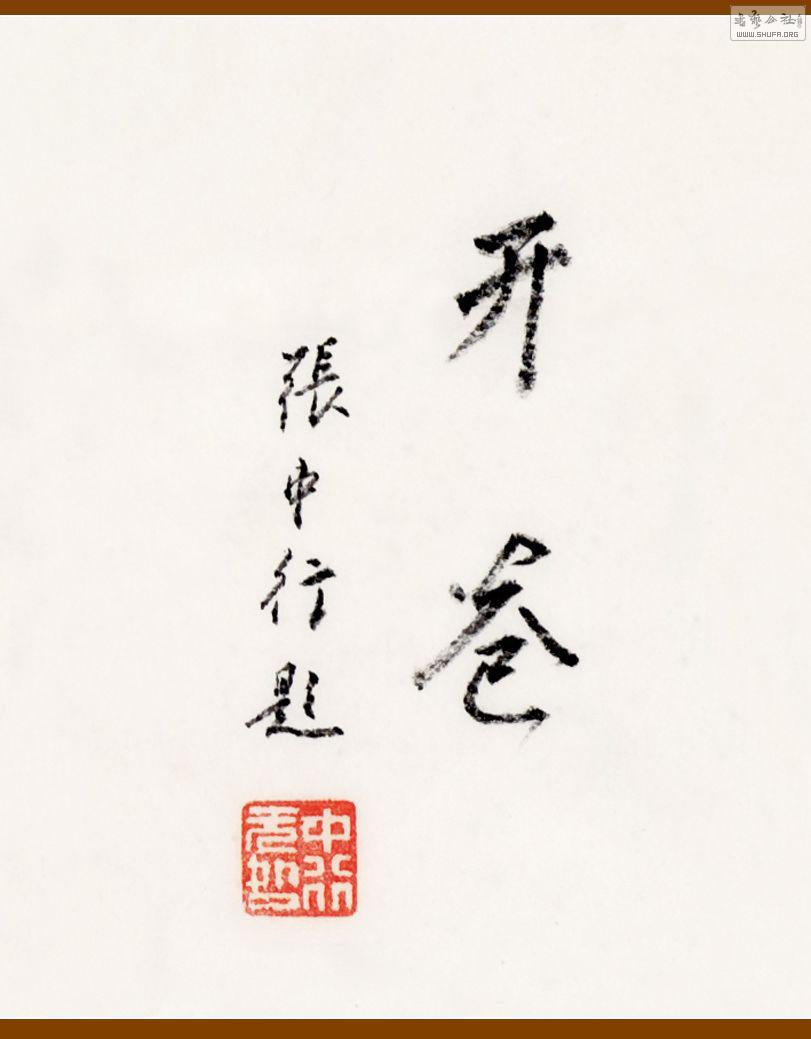 开卷
張中行題
中行无咎
书艺公社
WWW.SHUFA.ORG